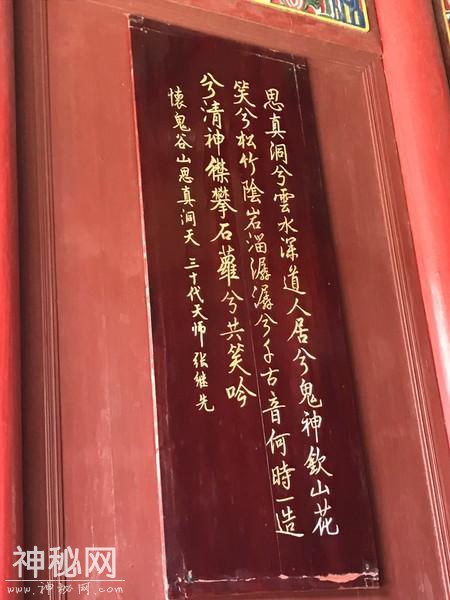 思真洞兮雲水深道人居兮鬼神欽山花
笑兮松竹陰岩溜潺潺兮千古音何時一造
兮清神襟攀石蘿兮共笑吟
懷鬼谷山思真洞天 三十代天师 张继先
神秘网
www.神秘网.COM